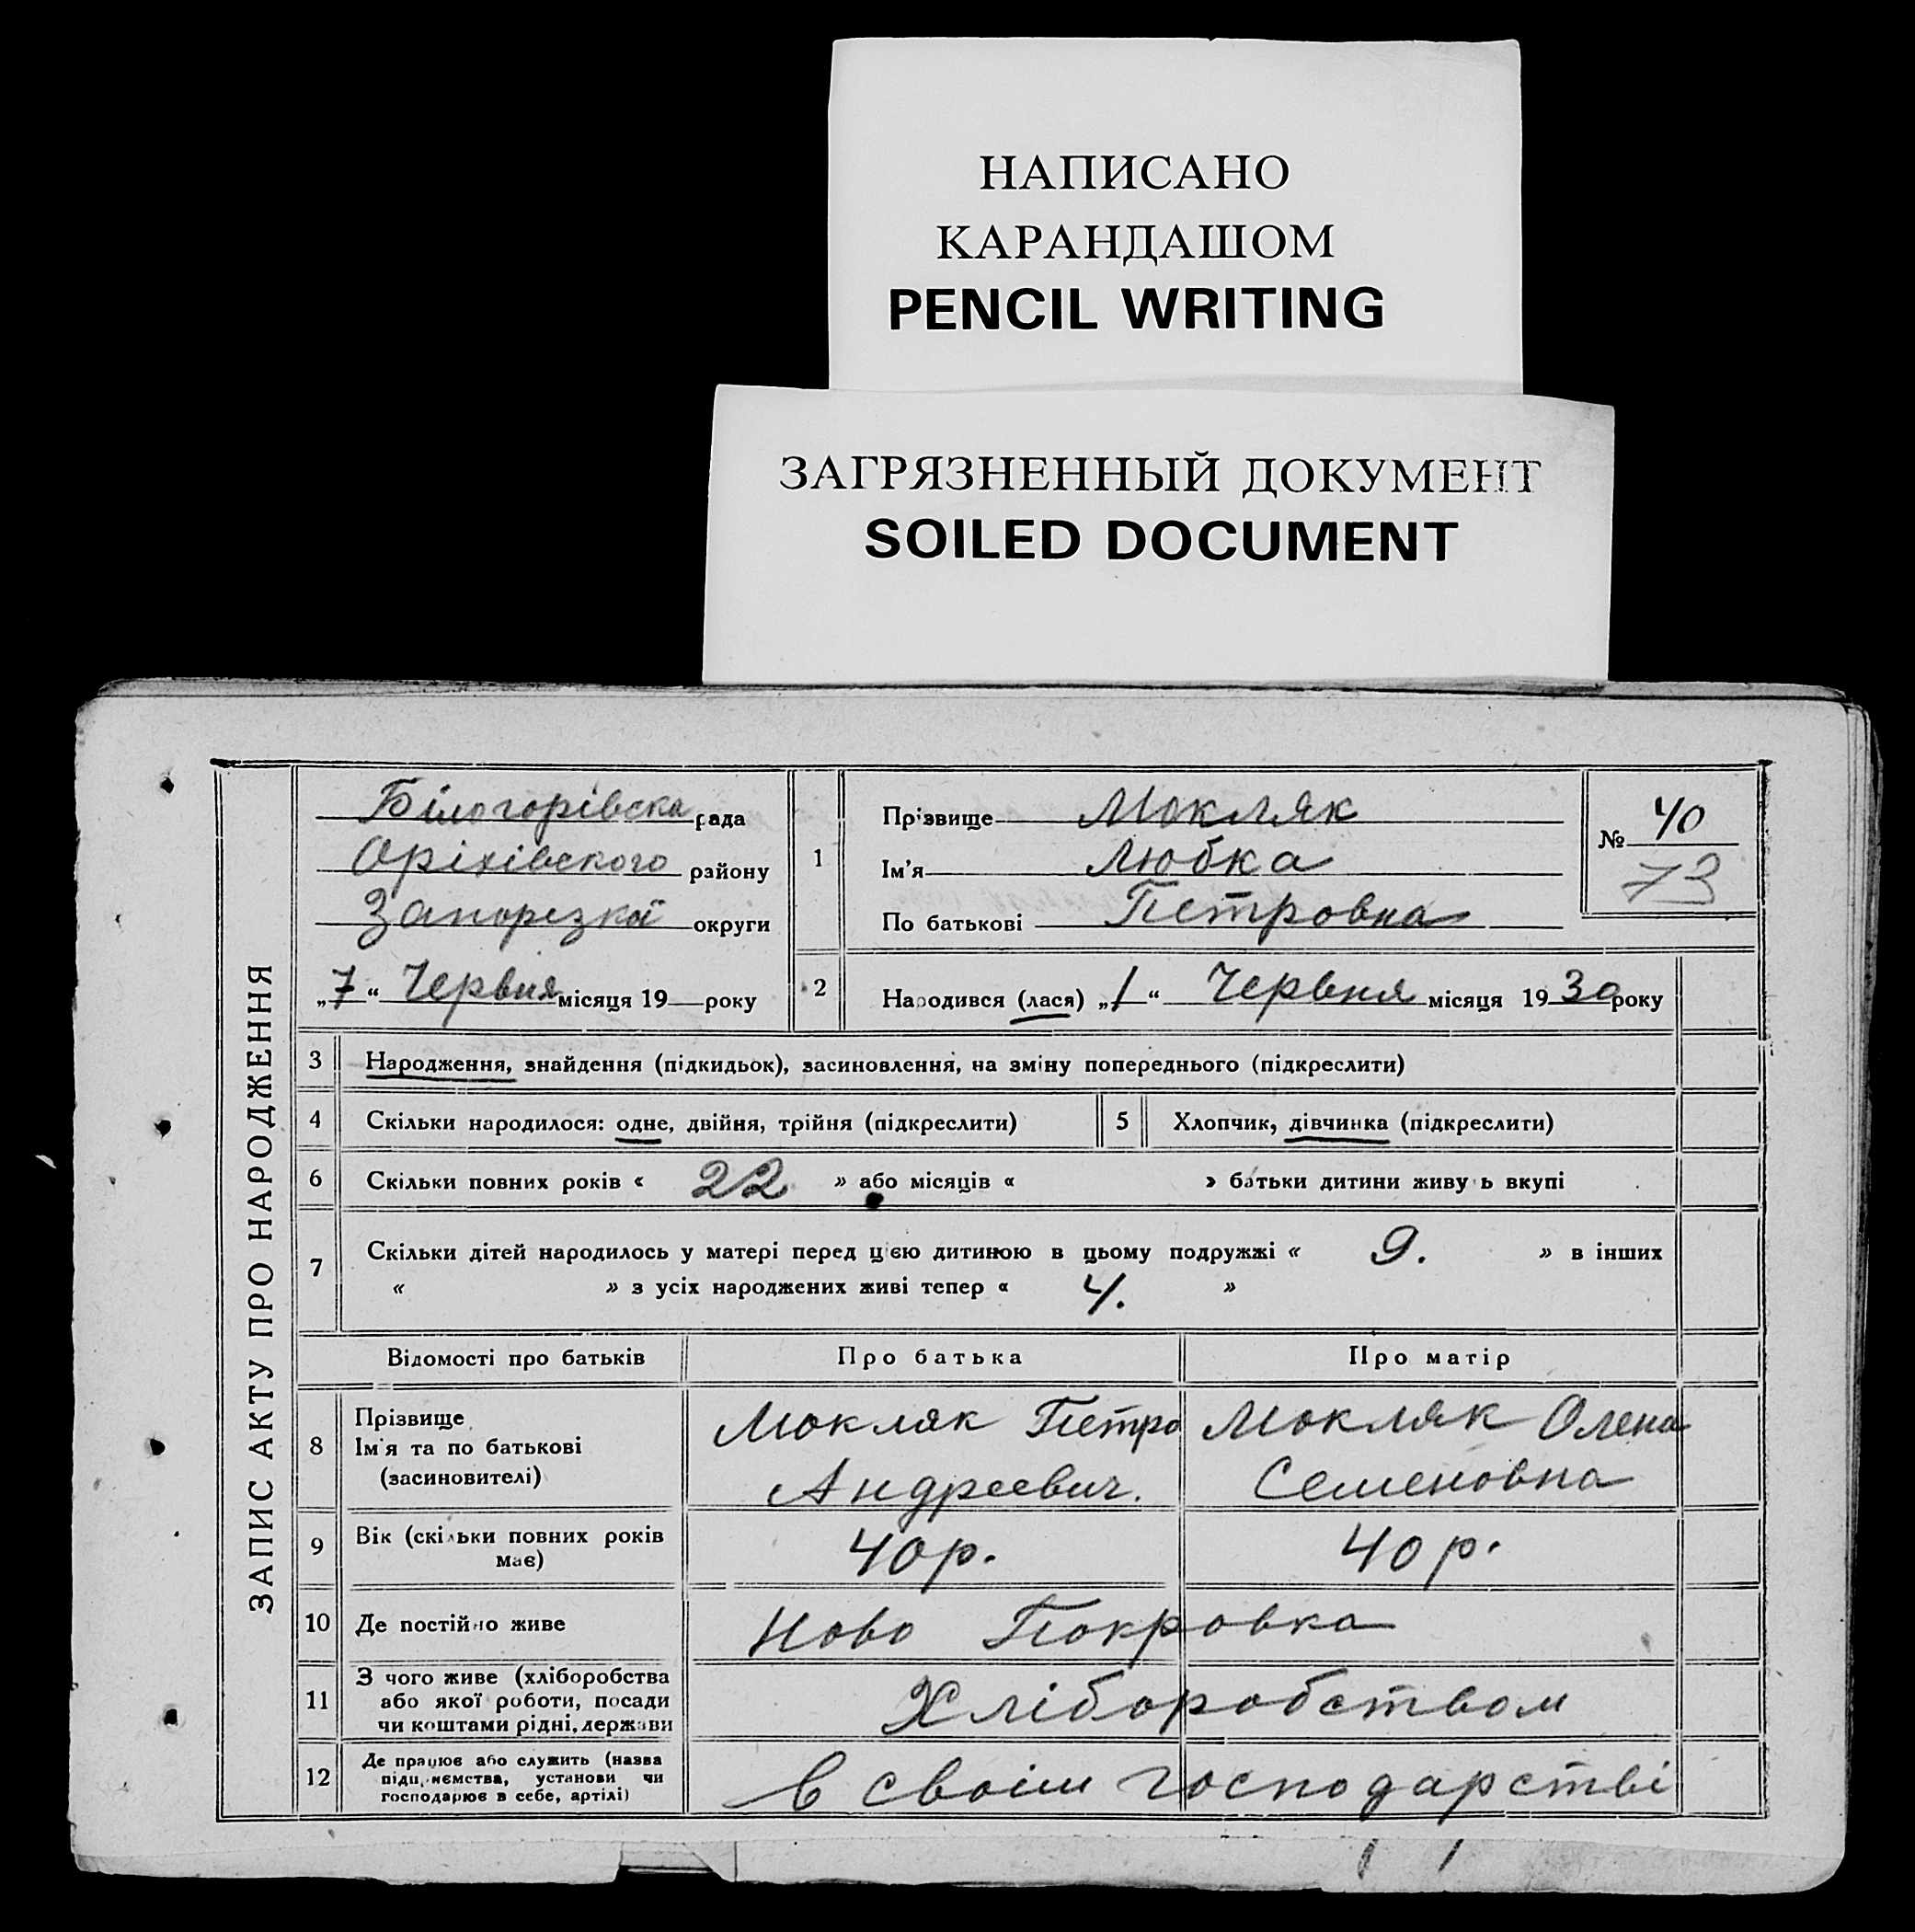 НАПИСАНО
КАРАНДАШОМ
PENCIL WRITING
ЗАГРЯЗНЕННЫЙ ДОКУМЕНТ
SOILED DOCUMENT
ЗАПИС АКТУ ПРО НАРОДЖЕННЯ
Білогорівска рада
Оріхівского району
Запорізкої округи
„7“ Червня місяця 19 року
1
Прізвище Мокляк
Ім'я Любка
По батькові Петровна
№ 40
73
2 Народився (лася) „1“ Червня місяця 1930 року
3 Народження, знайдення (підкидьок), засиновлення, на зміну попереднього (підкреслити)
4 Скільки народилося: одне, двійня, трійня (підкреслити) 5 Хлопчик, дівчинка (підкреслити)
6 Скільки повних років « 22 » або місяців « » батьки дитини живуть вкупі
7 Скільки дітей народилось у матері перед цією дитиною в цьому подружжі « 9. » в інших
« » з усіх народжених живі тепер « 4. »
Відомості про батьків Про батька Про матір
8 Прізвище
Ім'я та по батькові
(засиновителі)
Мокляк Петро
Андреевич.
Мокляк Олена
Семеновна
9 Вік (скільки повних років
має)
40 р. 40 р.
10 Де постійно живе Ново Покровка
11 З чого живе (хліборобства
або якої роботи, посади
чи коштами рідні, держави
Хліборобством
12 Де працює або служить (назва
підприємства, установи чи
господарює в себе, артілі)
в своім господарстві